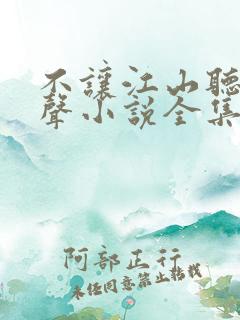 不讓江山聽
聲小說全集
阿部正行
未经同意禁止转载